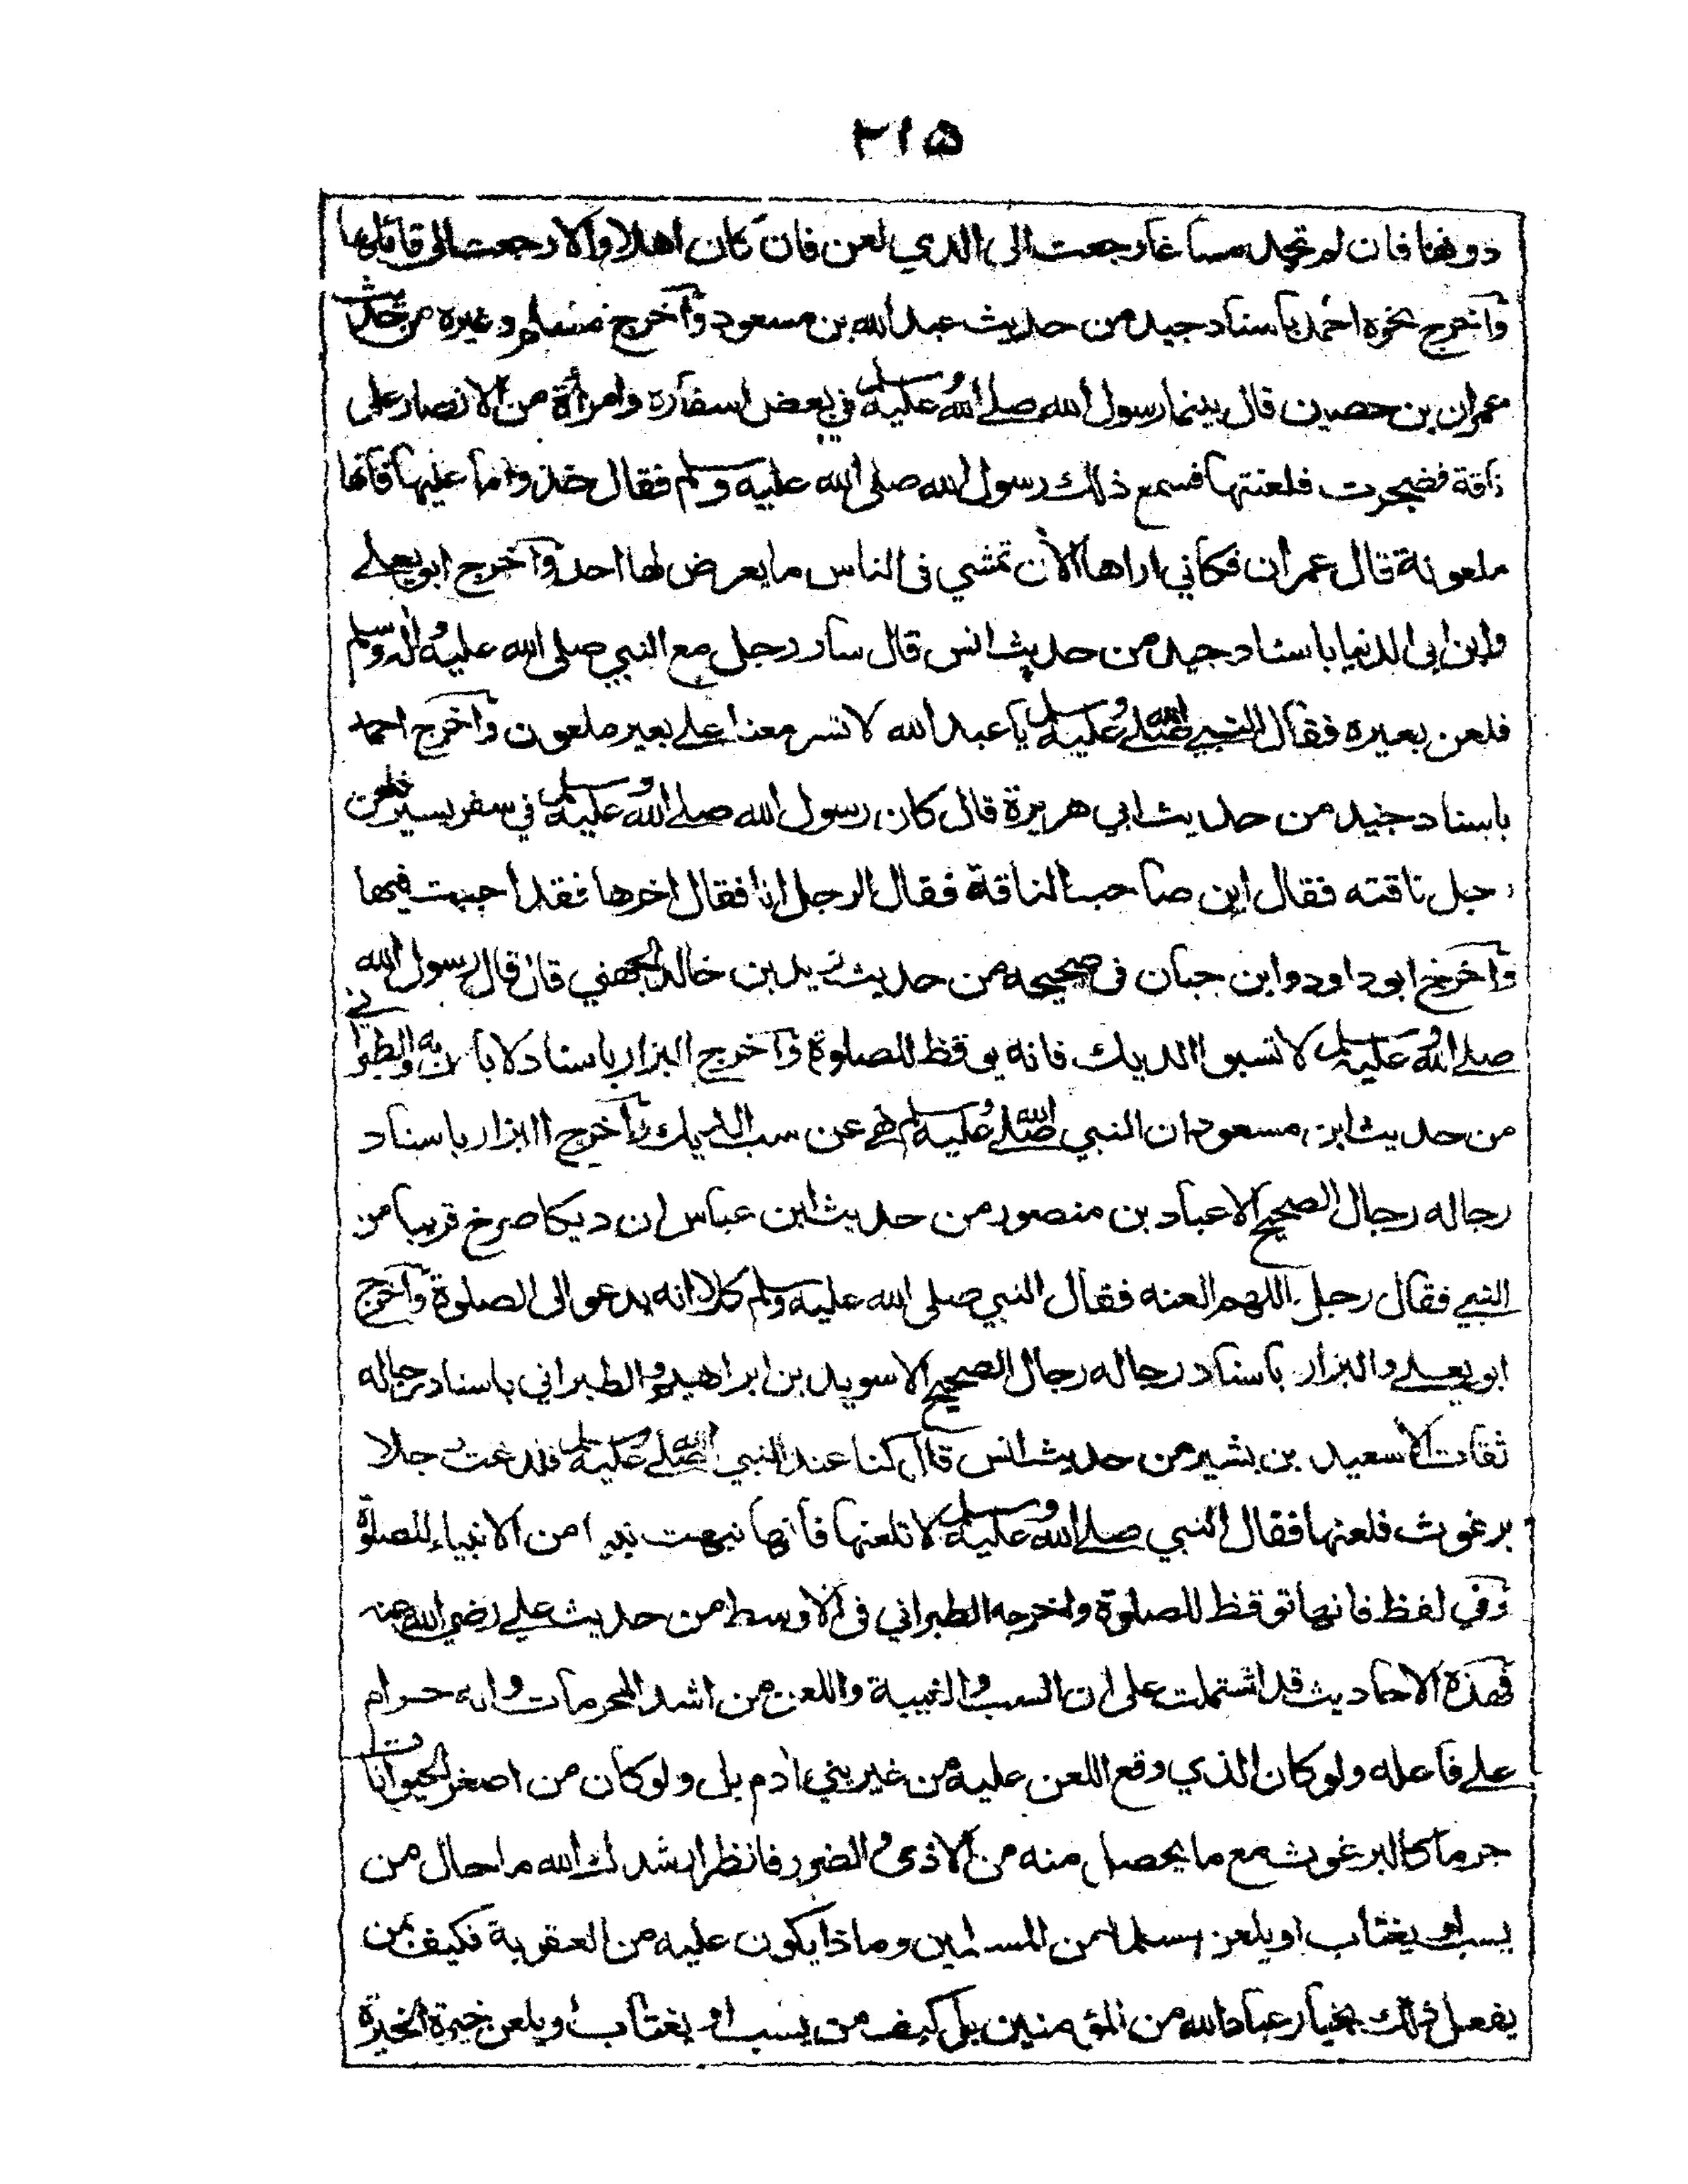 ٢١٥
دونها فان لم تجد مساغا رجعت الى الذي لعن فان كان اهلا والا رجعت الى قائلها
واخرج نحوه احمد باسناد جيد من حديث عبد الله بن مسعود واخرج مسلم وغيره من حديث
عمران بن حصين قال بينما رسول الله صلى الله عليه وسلم في بعض اسفاره وامرأة من الانصار على
ناقة فضجرت فلعنتها فسمع ذلك رسول الله صلى الله عليه وسلم فقال خذوا ما عليها فانها
ملعونة قال عمران فكاني اراها الآن تمشي في الناس ما يعرض لها احد واخرج ابو يعلى
وابن ابي الدنيا باسناد جيد من حديث انس قال سار رجل مع النبي صلى الله عليه واله وسلم
فلعن بعيره فقال النبي صلى الله عليه وسلم يا عبد الله لا تسر معنا على بعير ملعون واخرج احمد
باسناد جيد من حديث ابي هريرة قال كان رسول الله صلى الله عليه وسلم في سفر يسير فلعن
رجل ناقته فقال اين صاحب الناقة فقال الرجل انا فقال اخرها فقد اجبت فيها
واخرج ابو داود وابن حبان في صحيحه من حديث زيد بن خالد الجهني قال قال رسول الله
صلى الله عليه وسلم لا تسبوا الديك فانه يوقظ للصلوة واخرج البزار باسناد لا باس به والطبراني
من حديث ابن مسعود ان النبي صلى الله عليه وسلم نهى عن سب الديك واخرج البزار باسناد
رجاله رجال الصحيح الا عباد بن منصور من حديث ابن عباس ان ديكا صرخ قريبا من
النبي فقال رجل اللهم العنه فقال النبي صلى الله عليه وسلم كلا انه يدعو الى الصلوة واخرج
ابو يعلى والبزار باسناد رجاله رجال الصحيح الا سويد بن ابراهيم والطبراني باسناد رجاله
ثقات الا سعيد بن بشير من حديث انس قال كنا عند النبي صلى الله عليه وسلم فلدغت رجلا
برغوث فلعنها فقال النبي صلى الله عليه وسلم لا تلعنها فانها نبهت نبيا من الانبياء للصلوة
وفي لفظ فانها توقظ للصلوة واخرجه الطبراني في الاوسط من حديث علي رضي الله عنه
فهذه الاحاديث قد اشتملت على ان السب والغيبة واللعن من اشد المحرمات وانه حرام
على فاعله ولو كان الذي وقع اللعن عليه من غير بني ادم بل ولو كان من اصغر الحيوانات
جرما كالبرغوث مع ما يحصل منه من الاذى والضرر فانظر ارشدك الله ما حال من
يسب او يغتاب او يلعن مسلما من المسلمين وماذا يكون عليه من العقوبة فكيف بمن
يفعل ذلك بخيار عباد الله من المؤمنين بل كيف من يسب او يغتاب او يلعن خيرة الخيرة